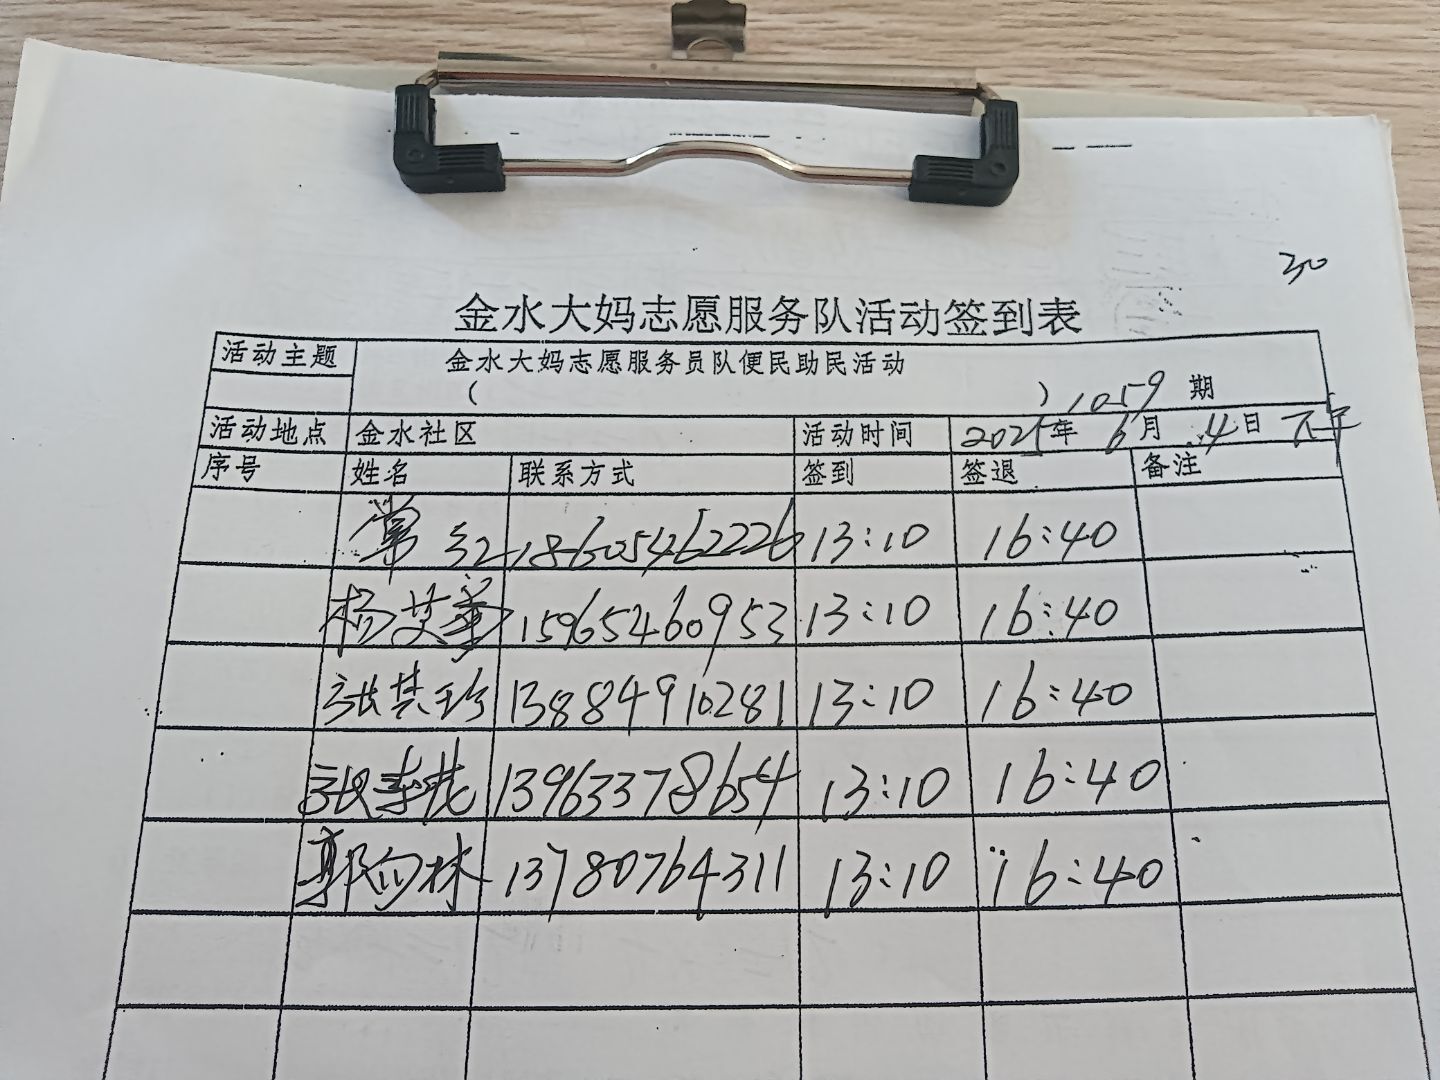 30
金水大妈志愿服务队活动签到表
活动主题 金水大妈志愿服务员队便民助民活动
( ) 1059 期
活动地点 金水社区 活动时间 2025年 6月 4日 下午
序号 姓名 联系方式 签到 签退 备注
常红 18605462226 13:10 16:40
杨艾 15965460953 13:10 16:40
张其珍 13884910281 13:10 16:40
张 13963378654 13:10 16:40
郭向林 13780764311 13:10 16:40